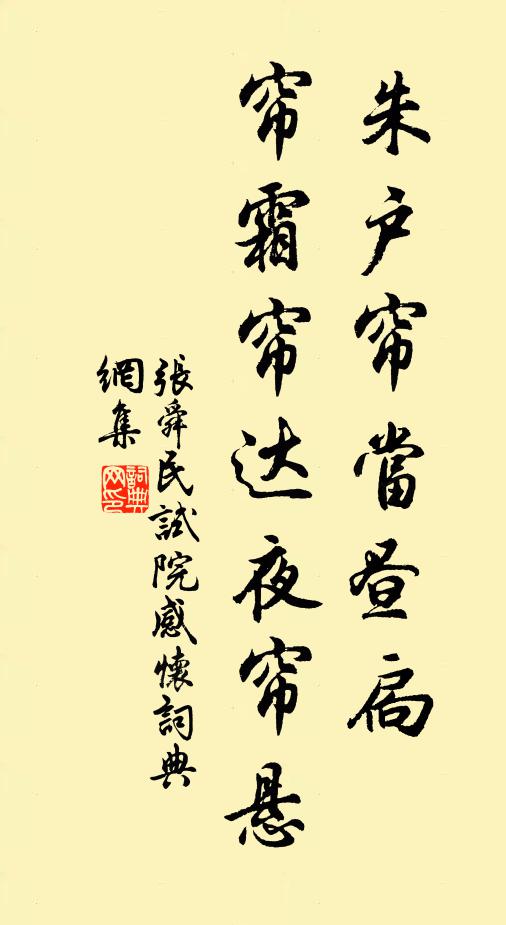 朱户帘當昼扃
帘霜帘达夜帘悬
張舜民試院感懷詞典
網集
詞典
网印